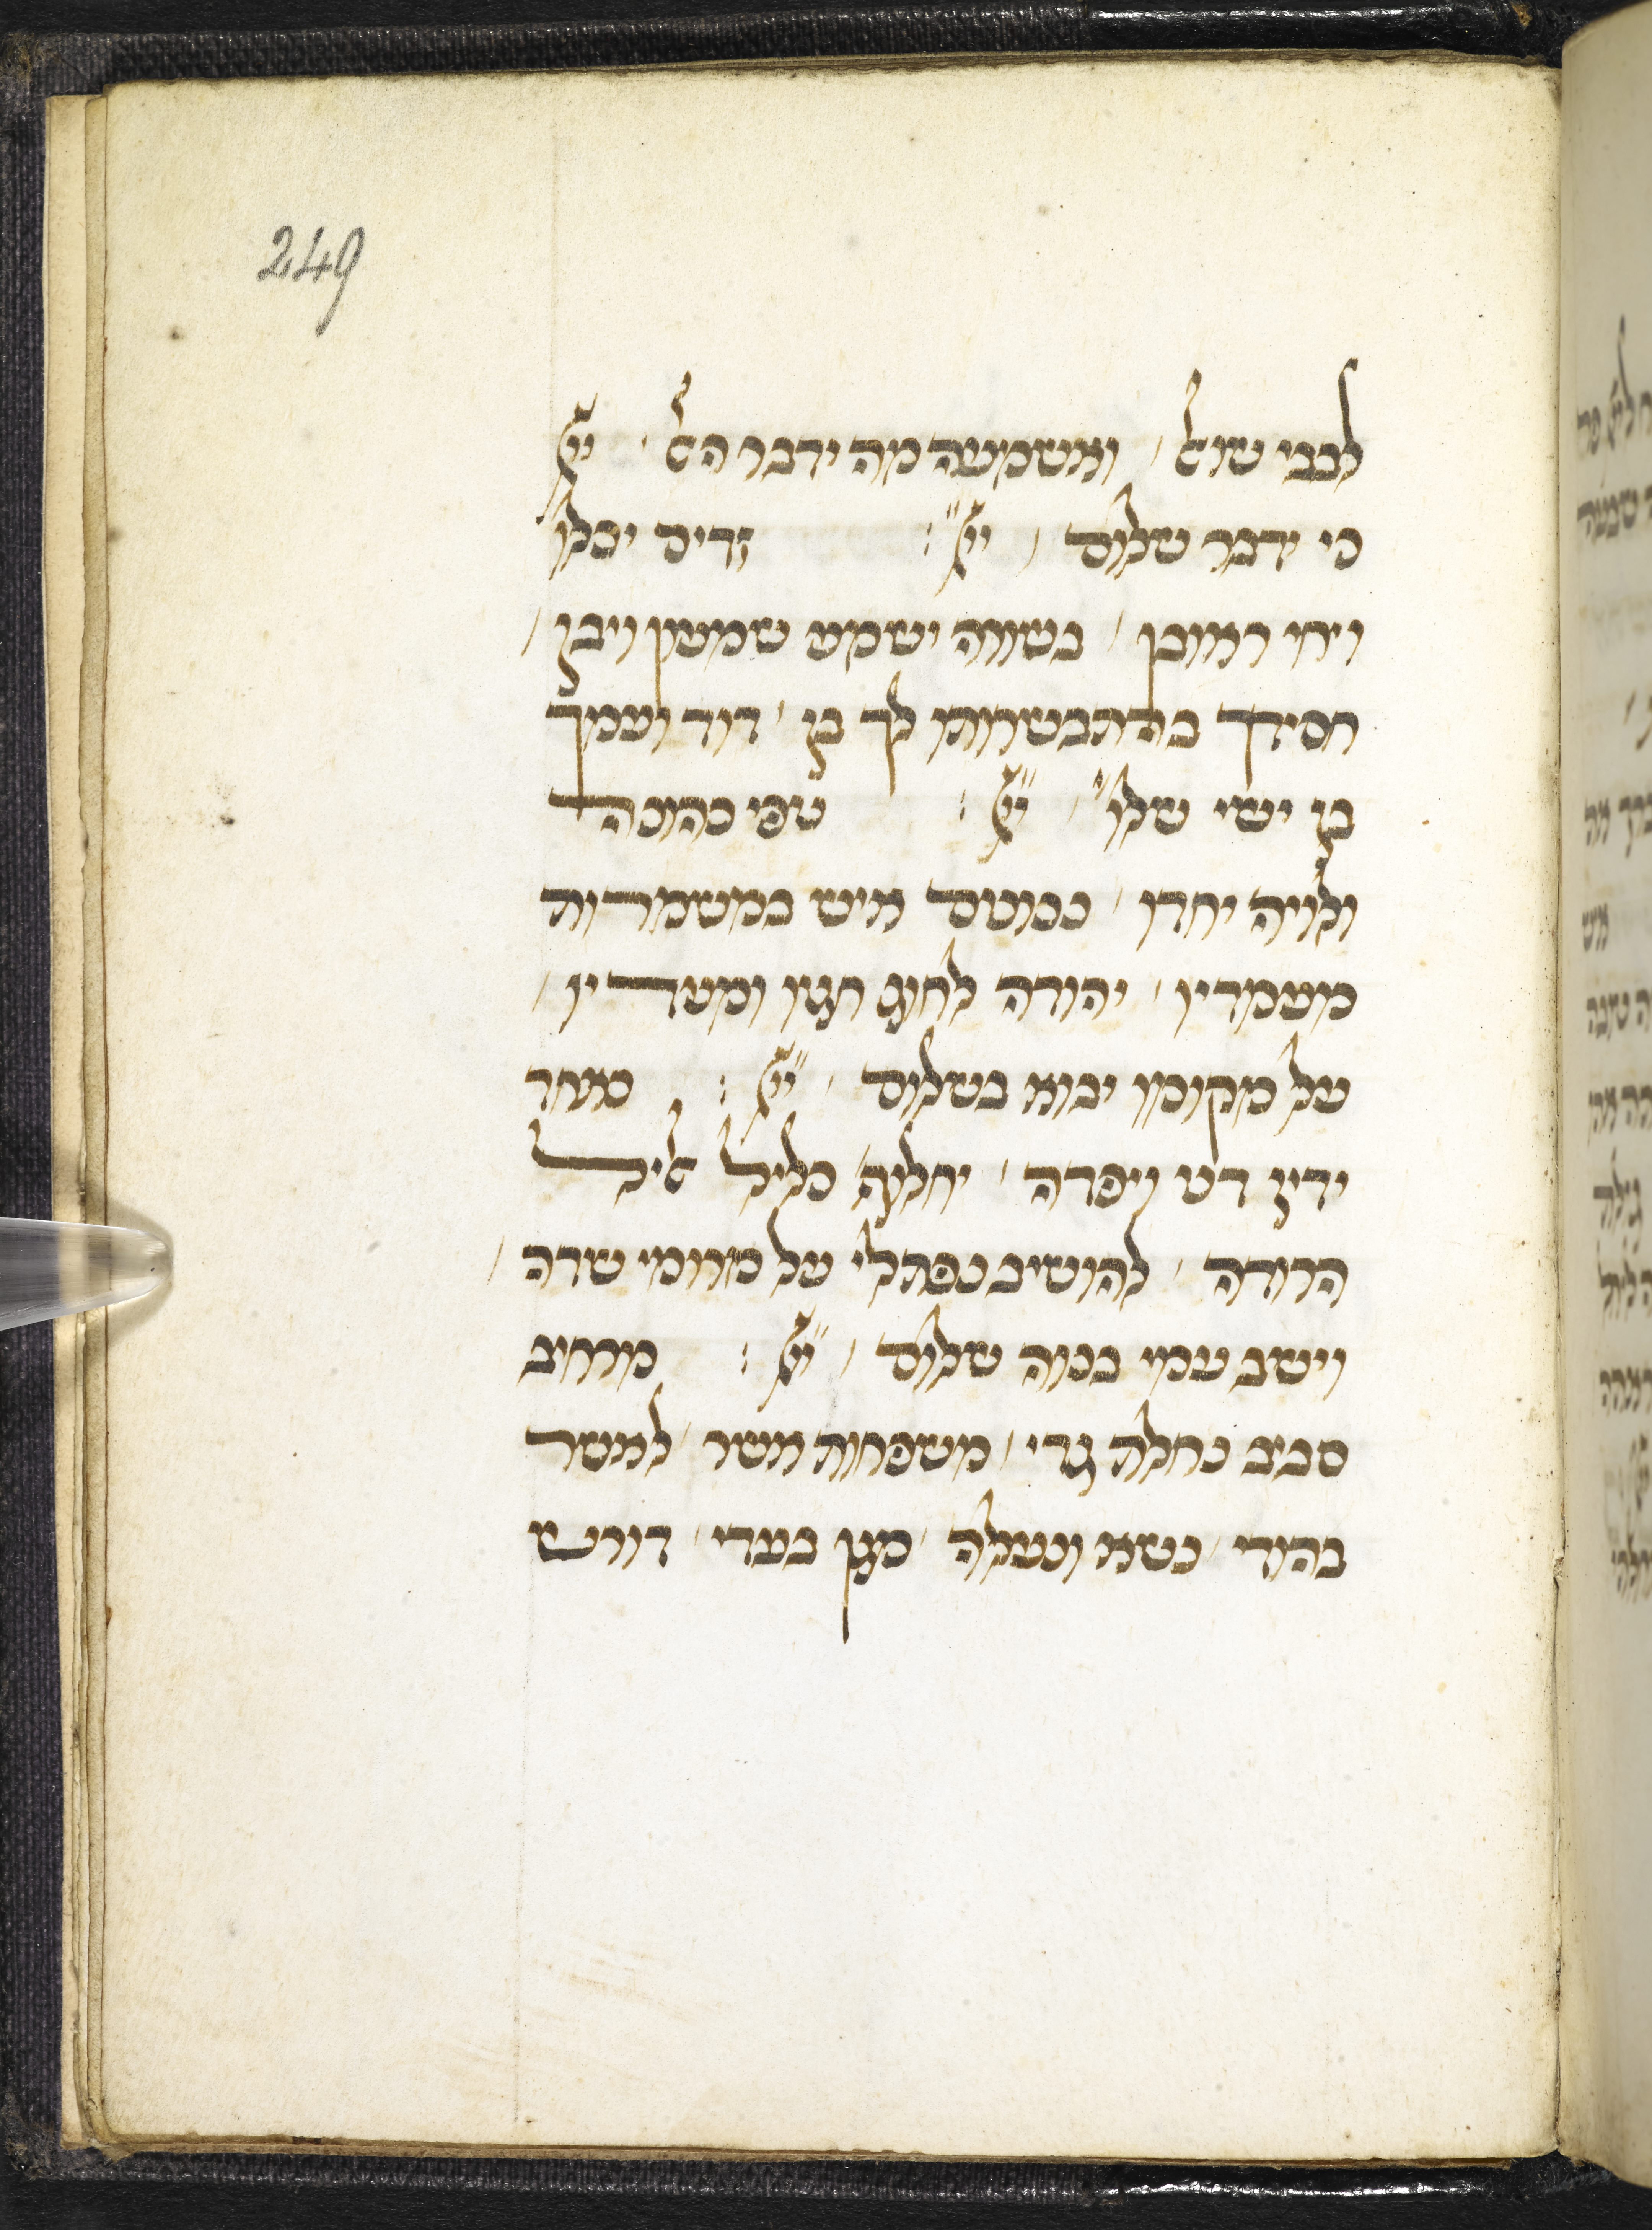 249
לבבי שואל / ואשמעה מה ידבר האל / י״ץ
כי ידבר שלום / י״ץ׃ זדים יכלו
ויחי ראובן / בשורה ישמע שמעון ויבן /
חסידך בהתבשרותו לך בן / דוד ועמך
בן ישי שלו׳ / י״ץ׃ טפי כהונה
ולויה יחדו / ככוונם איש במשמרות
מעמדיו / יהודה לחוג חגיו ומועדיו /
על מקומו יבוא בשלום / י״ץ׃
ידין דם ויפדה / יחלוף כליל אליל
הרודה / להושיב נפתלי על מרומי שדה /
וישב עמי בנוה שלום / י״ץ׃ מרחיב
סביב נחלת גדי / משפחות אשר לאשר
בהודי / נשא ונעלה / מגן בעדי / דורש